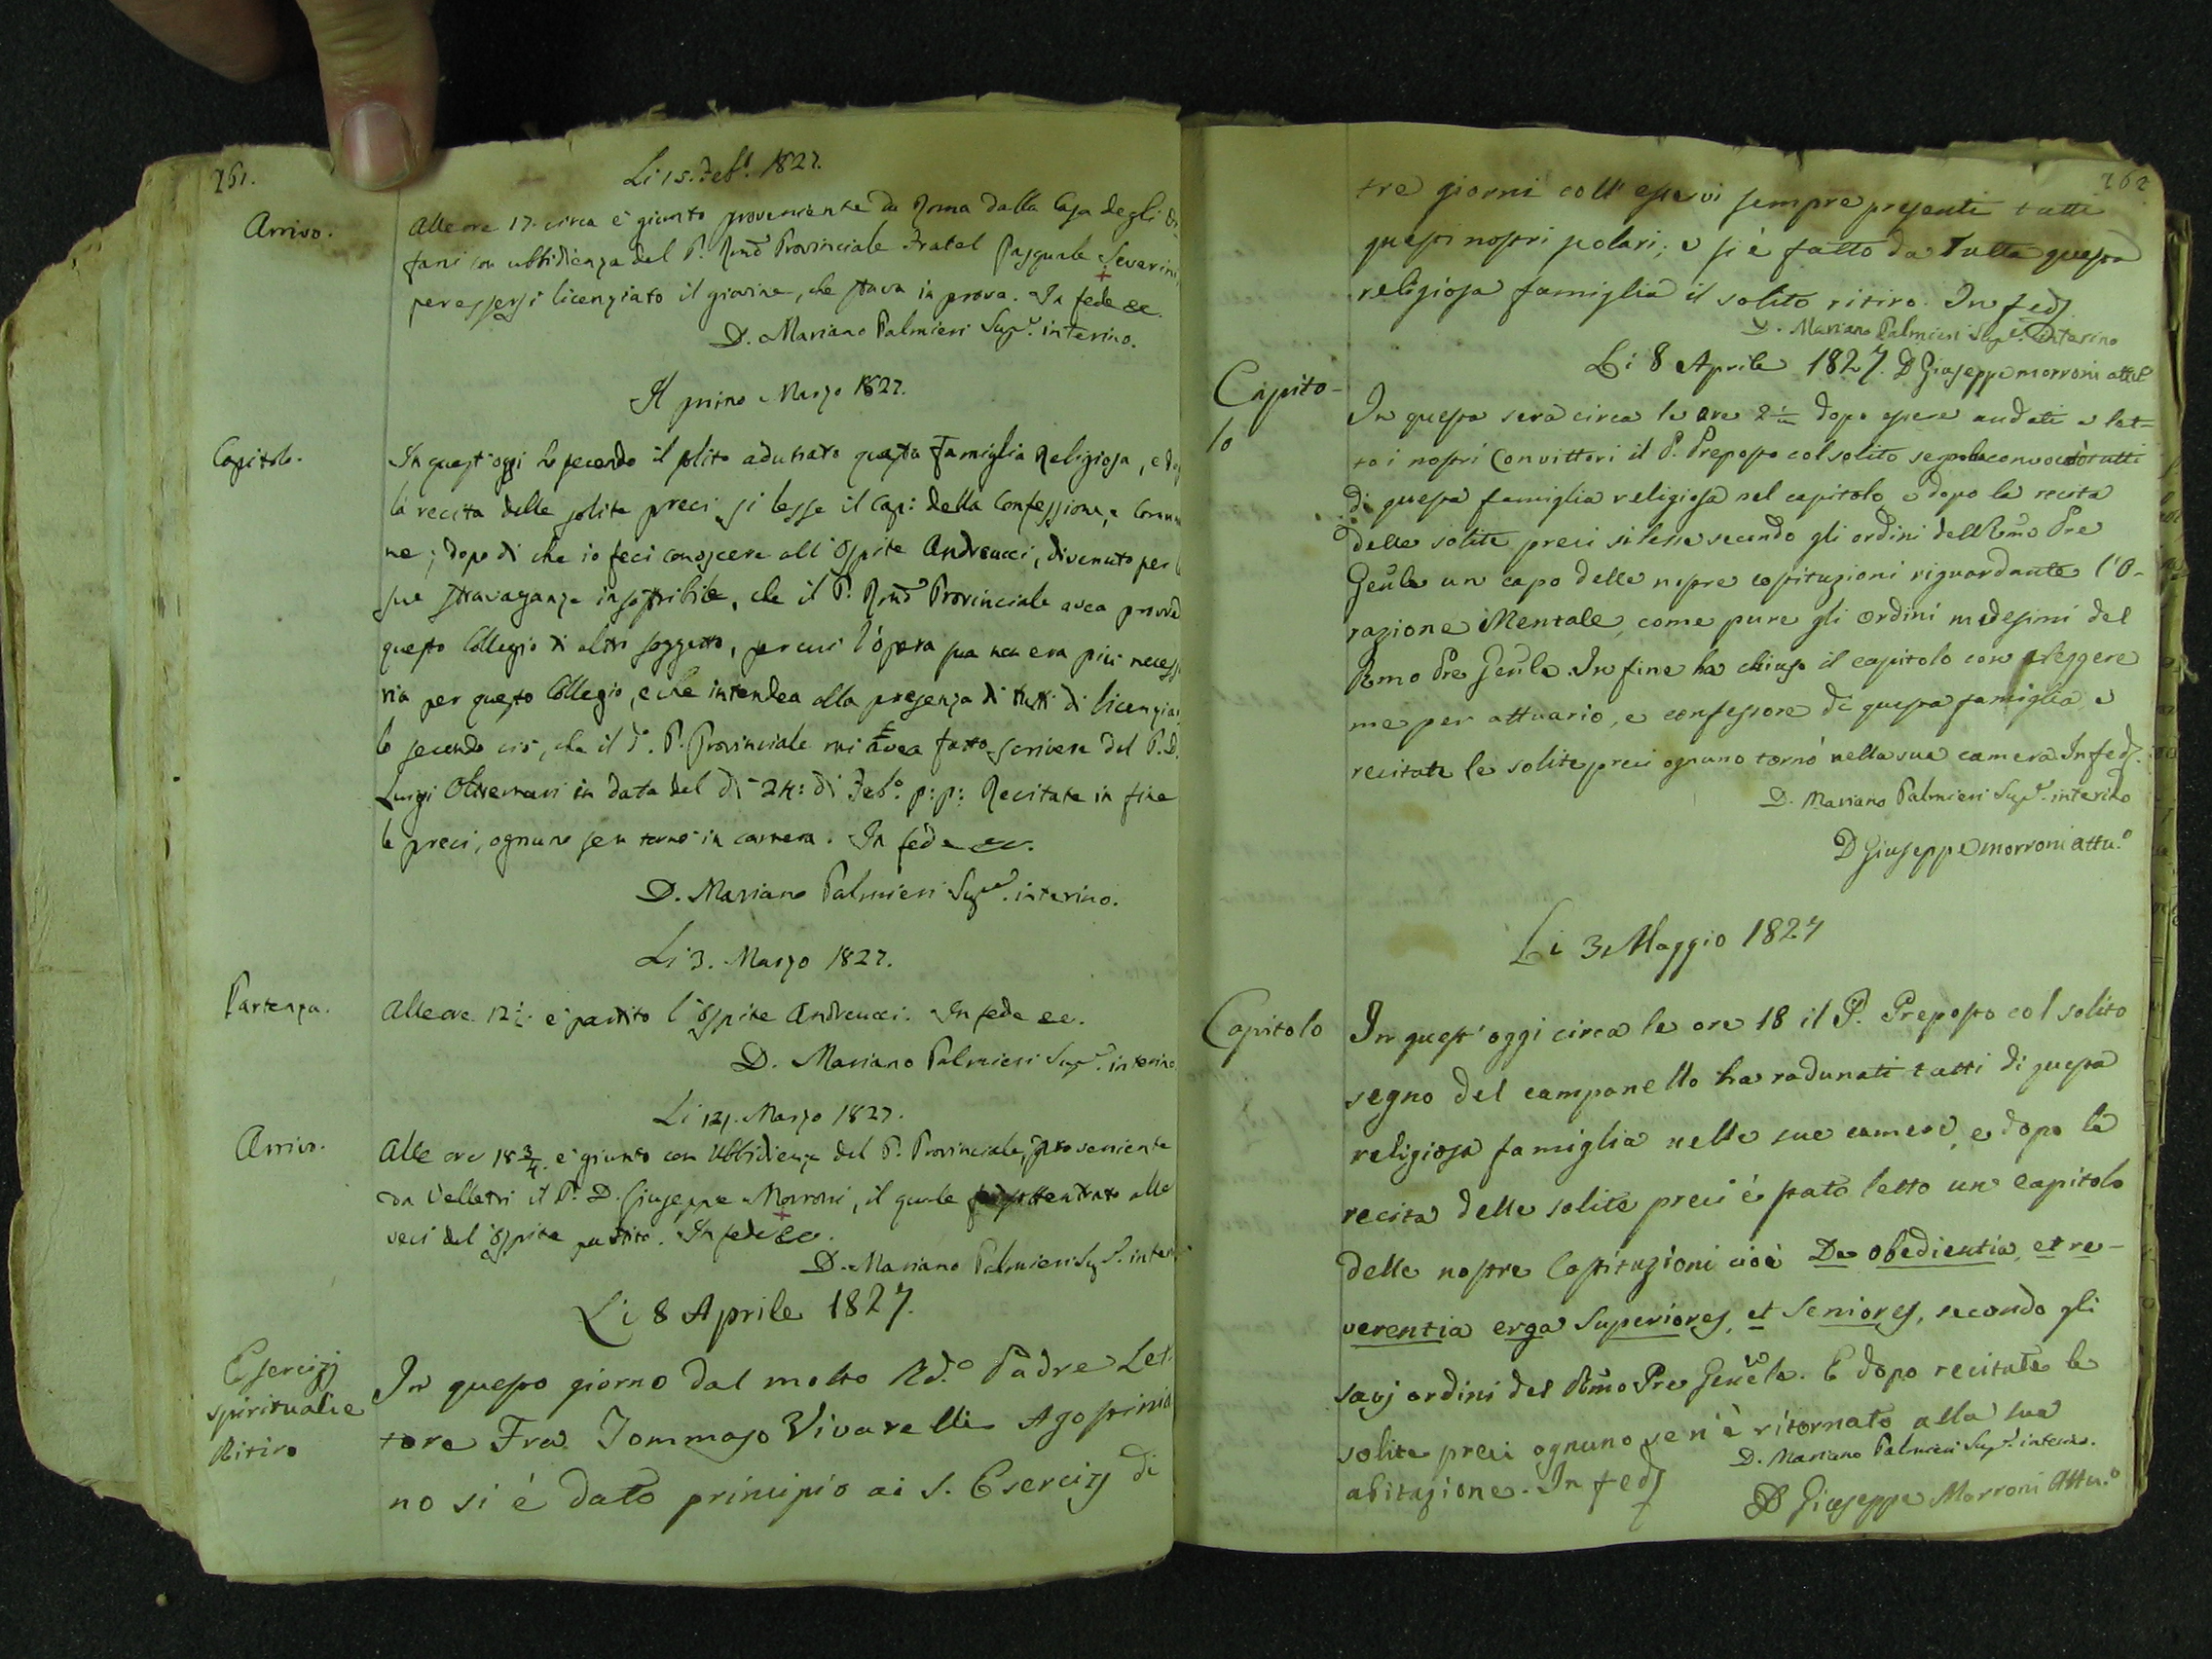 261.
Li 15. Feb.º 1827.
Arrivo.
Alle ore 17. circa è giunto proveniente da Roma dalla Casa degli Or-
fani con ubbidienza del P. Rmō Provinciale Fratel Pasquale Severini
per essersi licenziato il giovine, che stava in prova. In fede ec.
D. Mariano Palmieri Sup.e interino.
Il primo Marzo 1827.
Capitolo.
In quest'oggi ho secondo il solito adunato questa Famiglia Religiosa, e do
la recita delle solite preci si lesse il Cap: della Confessione, e Comun
ne; dopo di che io feci conoscere all'Ospite Andreucci, divenuto per
sue stravaganze insoffribile, che il P. Rmō Provinciale avea provid
questo Collegio di altro soggetto, per cui l'opera sua non era più necess
ria per questo Collegio, e che intendea alla presenza di tutti di licenziar
lo secondo ciò, che il d.º P. Provinciale mi avea fatto scrivere dal P. D.
Luigi in data del dì 24: di Feb.º p: p: Recitate in fine
le preci, ognuno sen tornò in camera. In fede ec.
D. Mariano Palmieri Sup.e interino.
Li 3. Marzo 1827.
Partenza.
Alle ore 12 ½ è partito l'Ospite Andreucci. In fede ec.
D. Mariano Palmieri Sup.e interino
Li 121. Marzo 1827.
Arrivo.
Alle ore 18 3/4. è giunto con Ubbidienza del P. Provinciale, proveniente
da Velletri il P. D. Giuseppe Morroni, il quale sottentrato alle
veci del Ospite partito. In fede ec.
D. Mariano Palmieri Sup.e inter
Li 8 Aprile 1827.
Esercizj
spirituali e
Ritiro
In questo giorno dal molto Rd.º Padre Let-
tore Fra Tommaso Vivarelli Agostinia
no si è dato principio ai S. Esercizj di
262
tre giorni coll'esservi sempre presenti tutti
questi nostri scolari; e si è fatto da tutta questa
religiosa famiglia il solito ritiro. In fede
D. Mariano Palmieri Sup.e interino
Li 8 Aprile 1827. D Giuseppe Morroni att.
Capito-
lo
In questa sera circa le ore 2 ½ dopo essere andati a let-
to i nostri Convittori il P. Preposto col solito segno convocò tutti
di questa famiglia religiosa nel capitolo, e dopo la recita
delle solite preci si lesse secondo gli ordini dell Rmo Pre
Genle un capo delle nostre costituzioni riguardante l'O-
razione Mentale, come pure gli ordini medesimi del
Rmo Pre Genle. In fine ha chiuso il capitolo con eleggere
me per attuario, e confessore di questa famiglia e
recitate le solite preci ognuno tornò nella sua camera In fede.
D. Mariano Palmieri Sup.e interino
D Giuseppe Morroni attu.º
Li 3 Maggio 1827
Capitolo
In quest'oggi circa le ore 18 il P. Preposto col solito
segno del campanello ha radunati tutti di questa
religiosa famiglia nelle sue camere, e dopo la
recita delle solite preci è stato letto un capitolo
delle nostre Costituzioni cioè De obedientia, et re-
verentia erga Superiores, et Seniores, secondo gli
savj ordini del Rmo Pre Genle. E dopo recitate le
solite preci ognuno se n'è ritornato alla sua
abitazione. In fede
D. Mariano Palmieri Sup.e interino.
D Giuseppe Morroni Attu.º